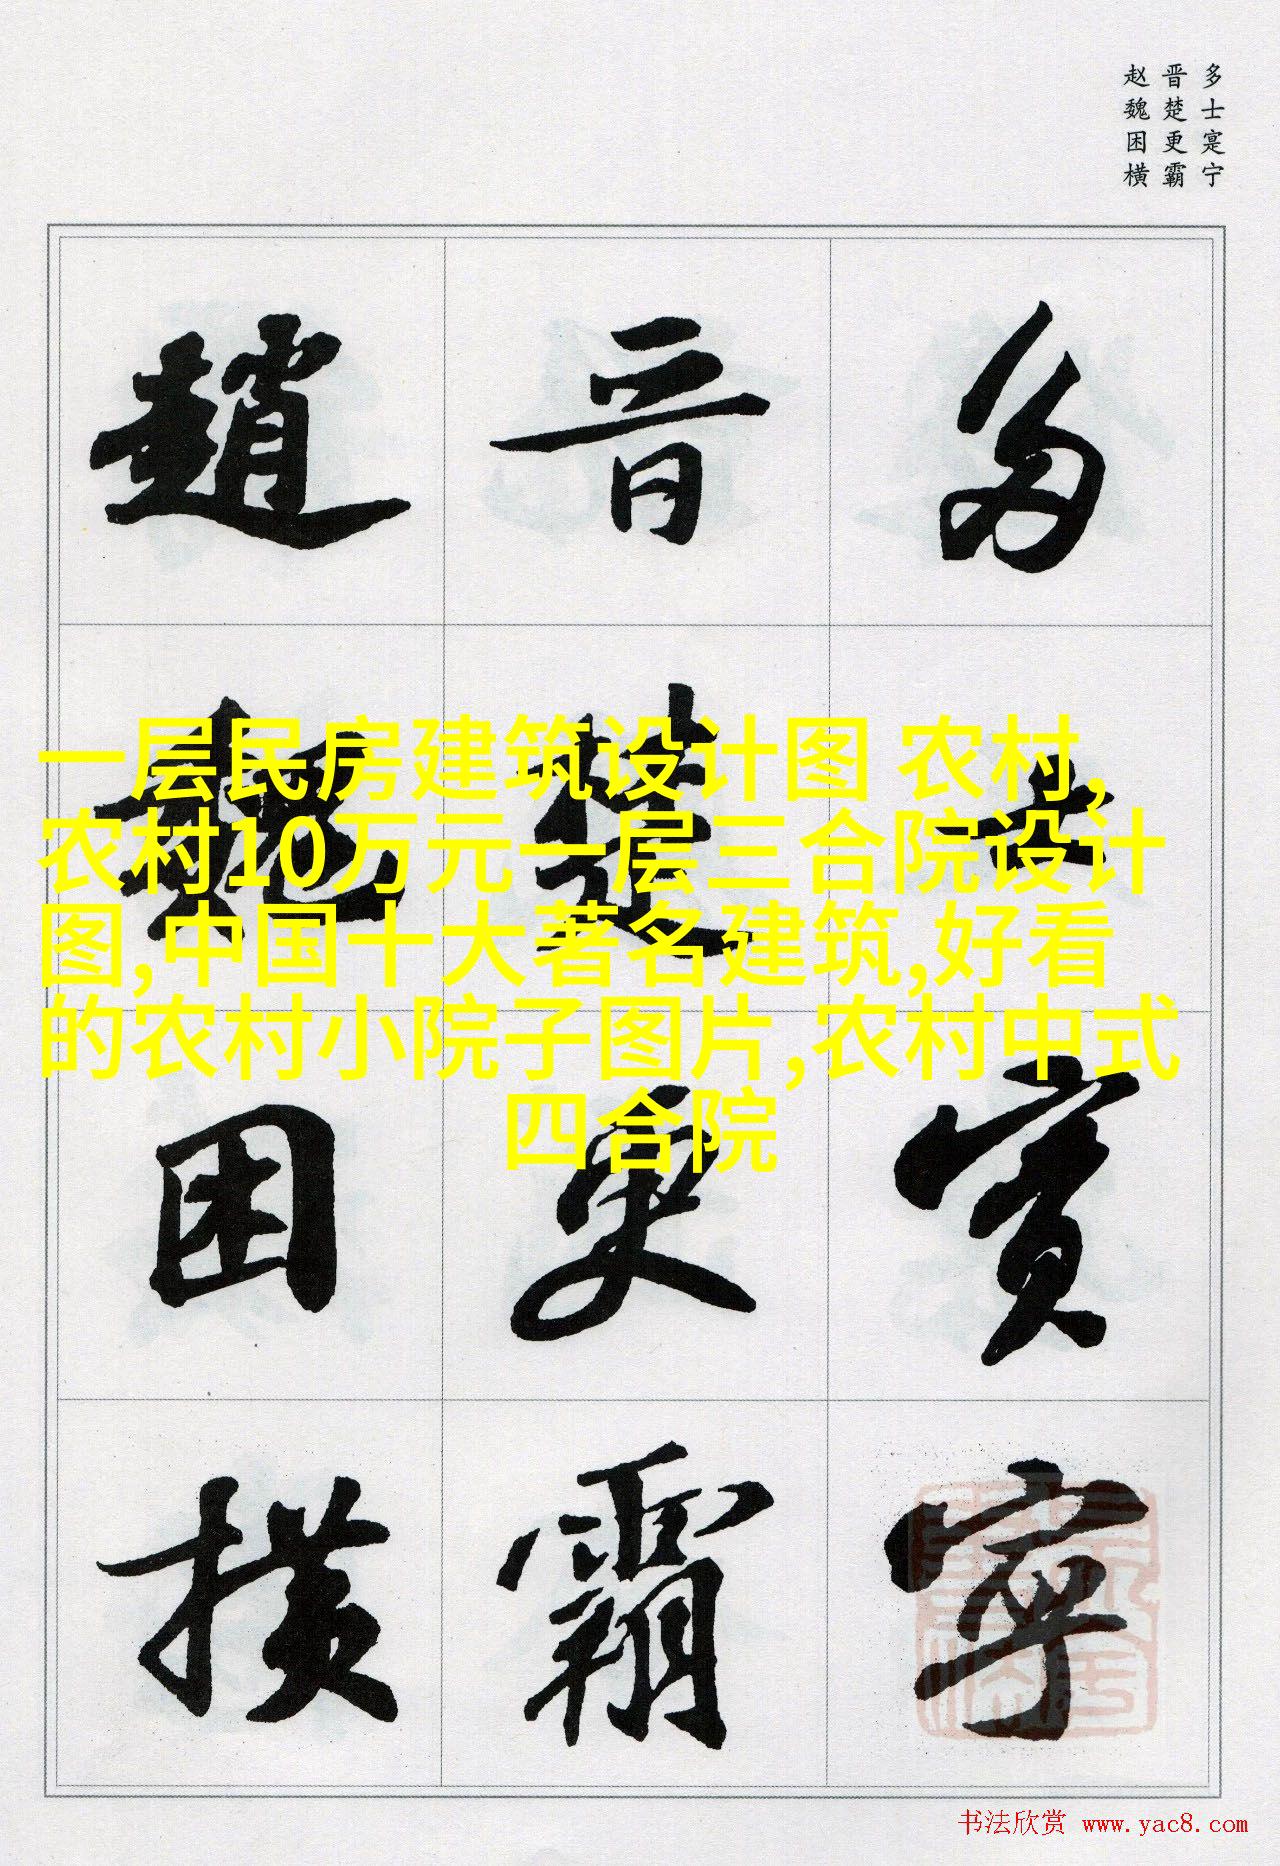 多士寔宁
晋楚更霸
赵魏困横
多士寔寧
晉楚更霸
趙魏困橫
一层民房建筑设计图 农村,
农村10万元一层三合院设计
图,中国十大著名建筑,好看
的农村小院子图片,农村中式
四合院
书法欣赏 www.yac8.com